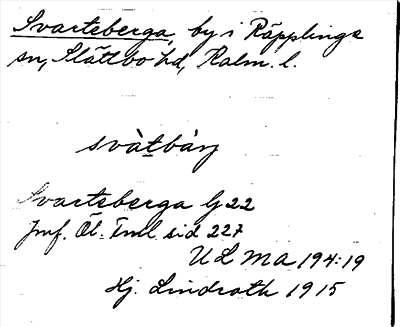 Svarteberga, by i Räpplinge
sn, Slättbo hd, Kalm. l.
svàtbàrj
Svarteberga G 22
Jmf. Öl. Inl. sid 227
ULMA 194:19
Hj. Lindroth 1915